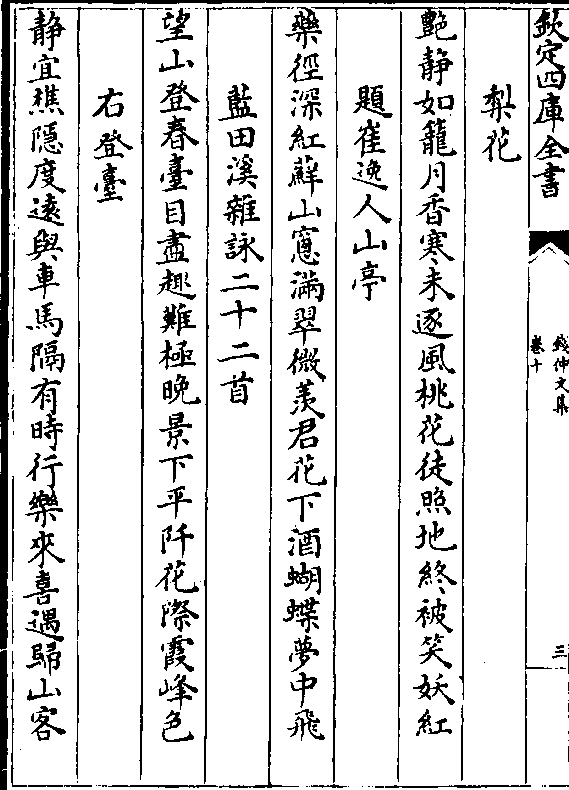 欽定四庫全書
錢仲文集
卷十
三
梨花
艶静如籠月香寒未逐風桃花徒照地終被笑妖紅
題崔逸人山亭
藥徑深紅蘚山窻滿翠微羨君花下酒蝴蝶夢中飛
藍田溪雜詠二十二首
望山登春臺目盡趣難極晩景下平阡花際霞峰色
右登臺
静宜樵隱度遠與車馬隔有時行樂來喜遇歸山客